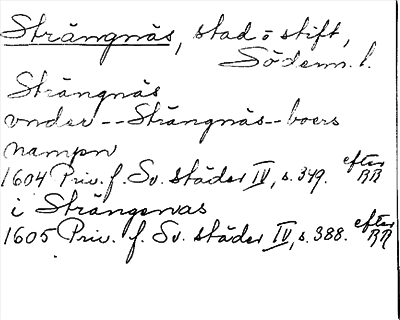 Strängnäs, stad o stift,
Söderm. l.
Strängnäs
vnder -- Strängnäs -- boers
nampn
1604 Priv. f. Sv. städer IV, s. 349. efter RR
i Strängenas
1605 Priv. f. Sv. städer IV, s. 388. efter RR